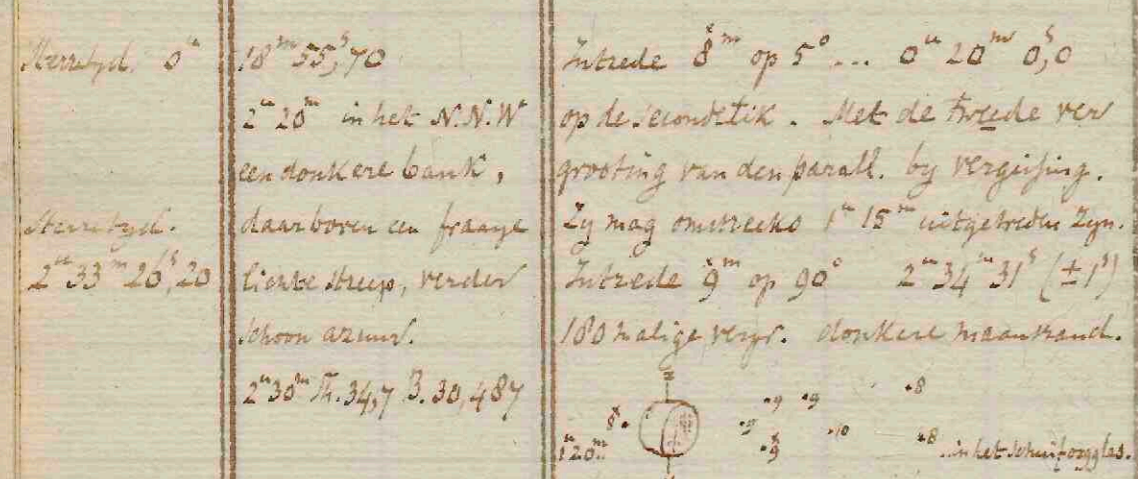 Sterretyd. 0ᵘ 18ᵐ 55ˢ,70
2ᵘ 20ᵐ in het N.N.W
een donkere bank,
daarboven een fraaye
lichte streep, verder
schoon azuur.
2ᵘ 30ᵐ Th. 34,7 B. 30,487
Sterretyd.
2ᵘ 33ᵐ 26ˢ,20
Intrede *8ᵐ op 5° ... 0ᵘ 20ᵐ 0ˢ,0
op de secondetik. Met de tweede ver
grooting van den parall. by vergissing.
Zy mag omstreeks 1ᵘ 15ᵐ uitgetreden zyn.
Intrede *9ᵐ op 90° 2ᵘ 34ᵐ 31ˢ (±1ˢ)
180 malige vergr. donkere maansrand.
z
8 9 9 8
9 10 8
1ᵘ 20ᵐ.. 9 ..in het schuifooggles.